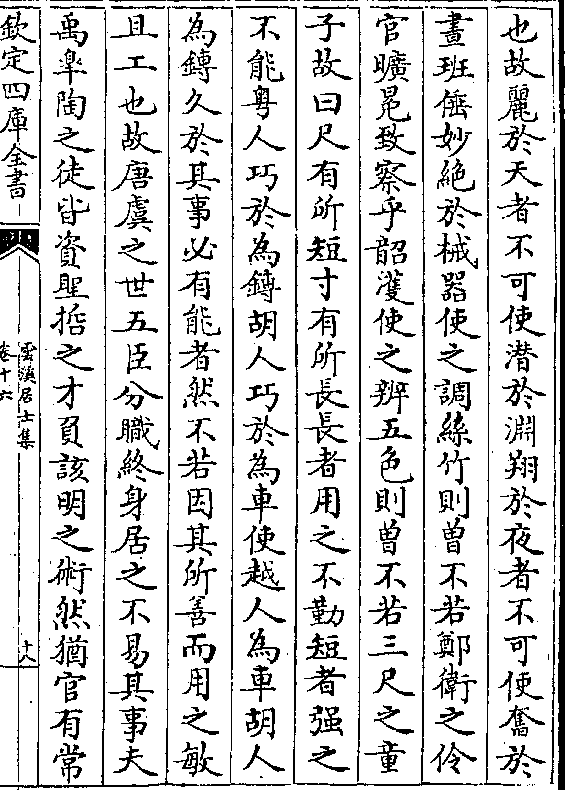 也故麗於天者不可使潛於淵翔於夜者不可使奮於
晝班倕妙絶於械器使之調絲竹則曽不若鄭衛之伶
官曠晃致察乎韶濩使之辨五色則曽不若三尺之童
子故曰尺有所短寸有所長長者用之不勤短者强之
不能粤人巧於為鏄胡人巧於為車使越人為車胡人
為鏄久於其事必有能者然不若因其所善而用之敏
且工也故唐虞之世五臣分職終身居之不易其事夫
禹臯陶之徒皆資聖哲之才負該明之術然猶官有常
欽定四庫全書
雲溪居士集
卷十六
十八